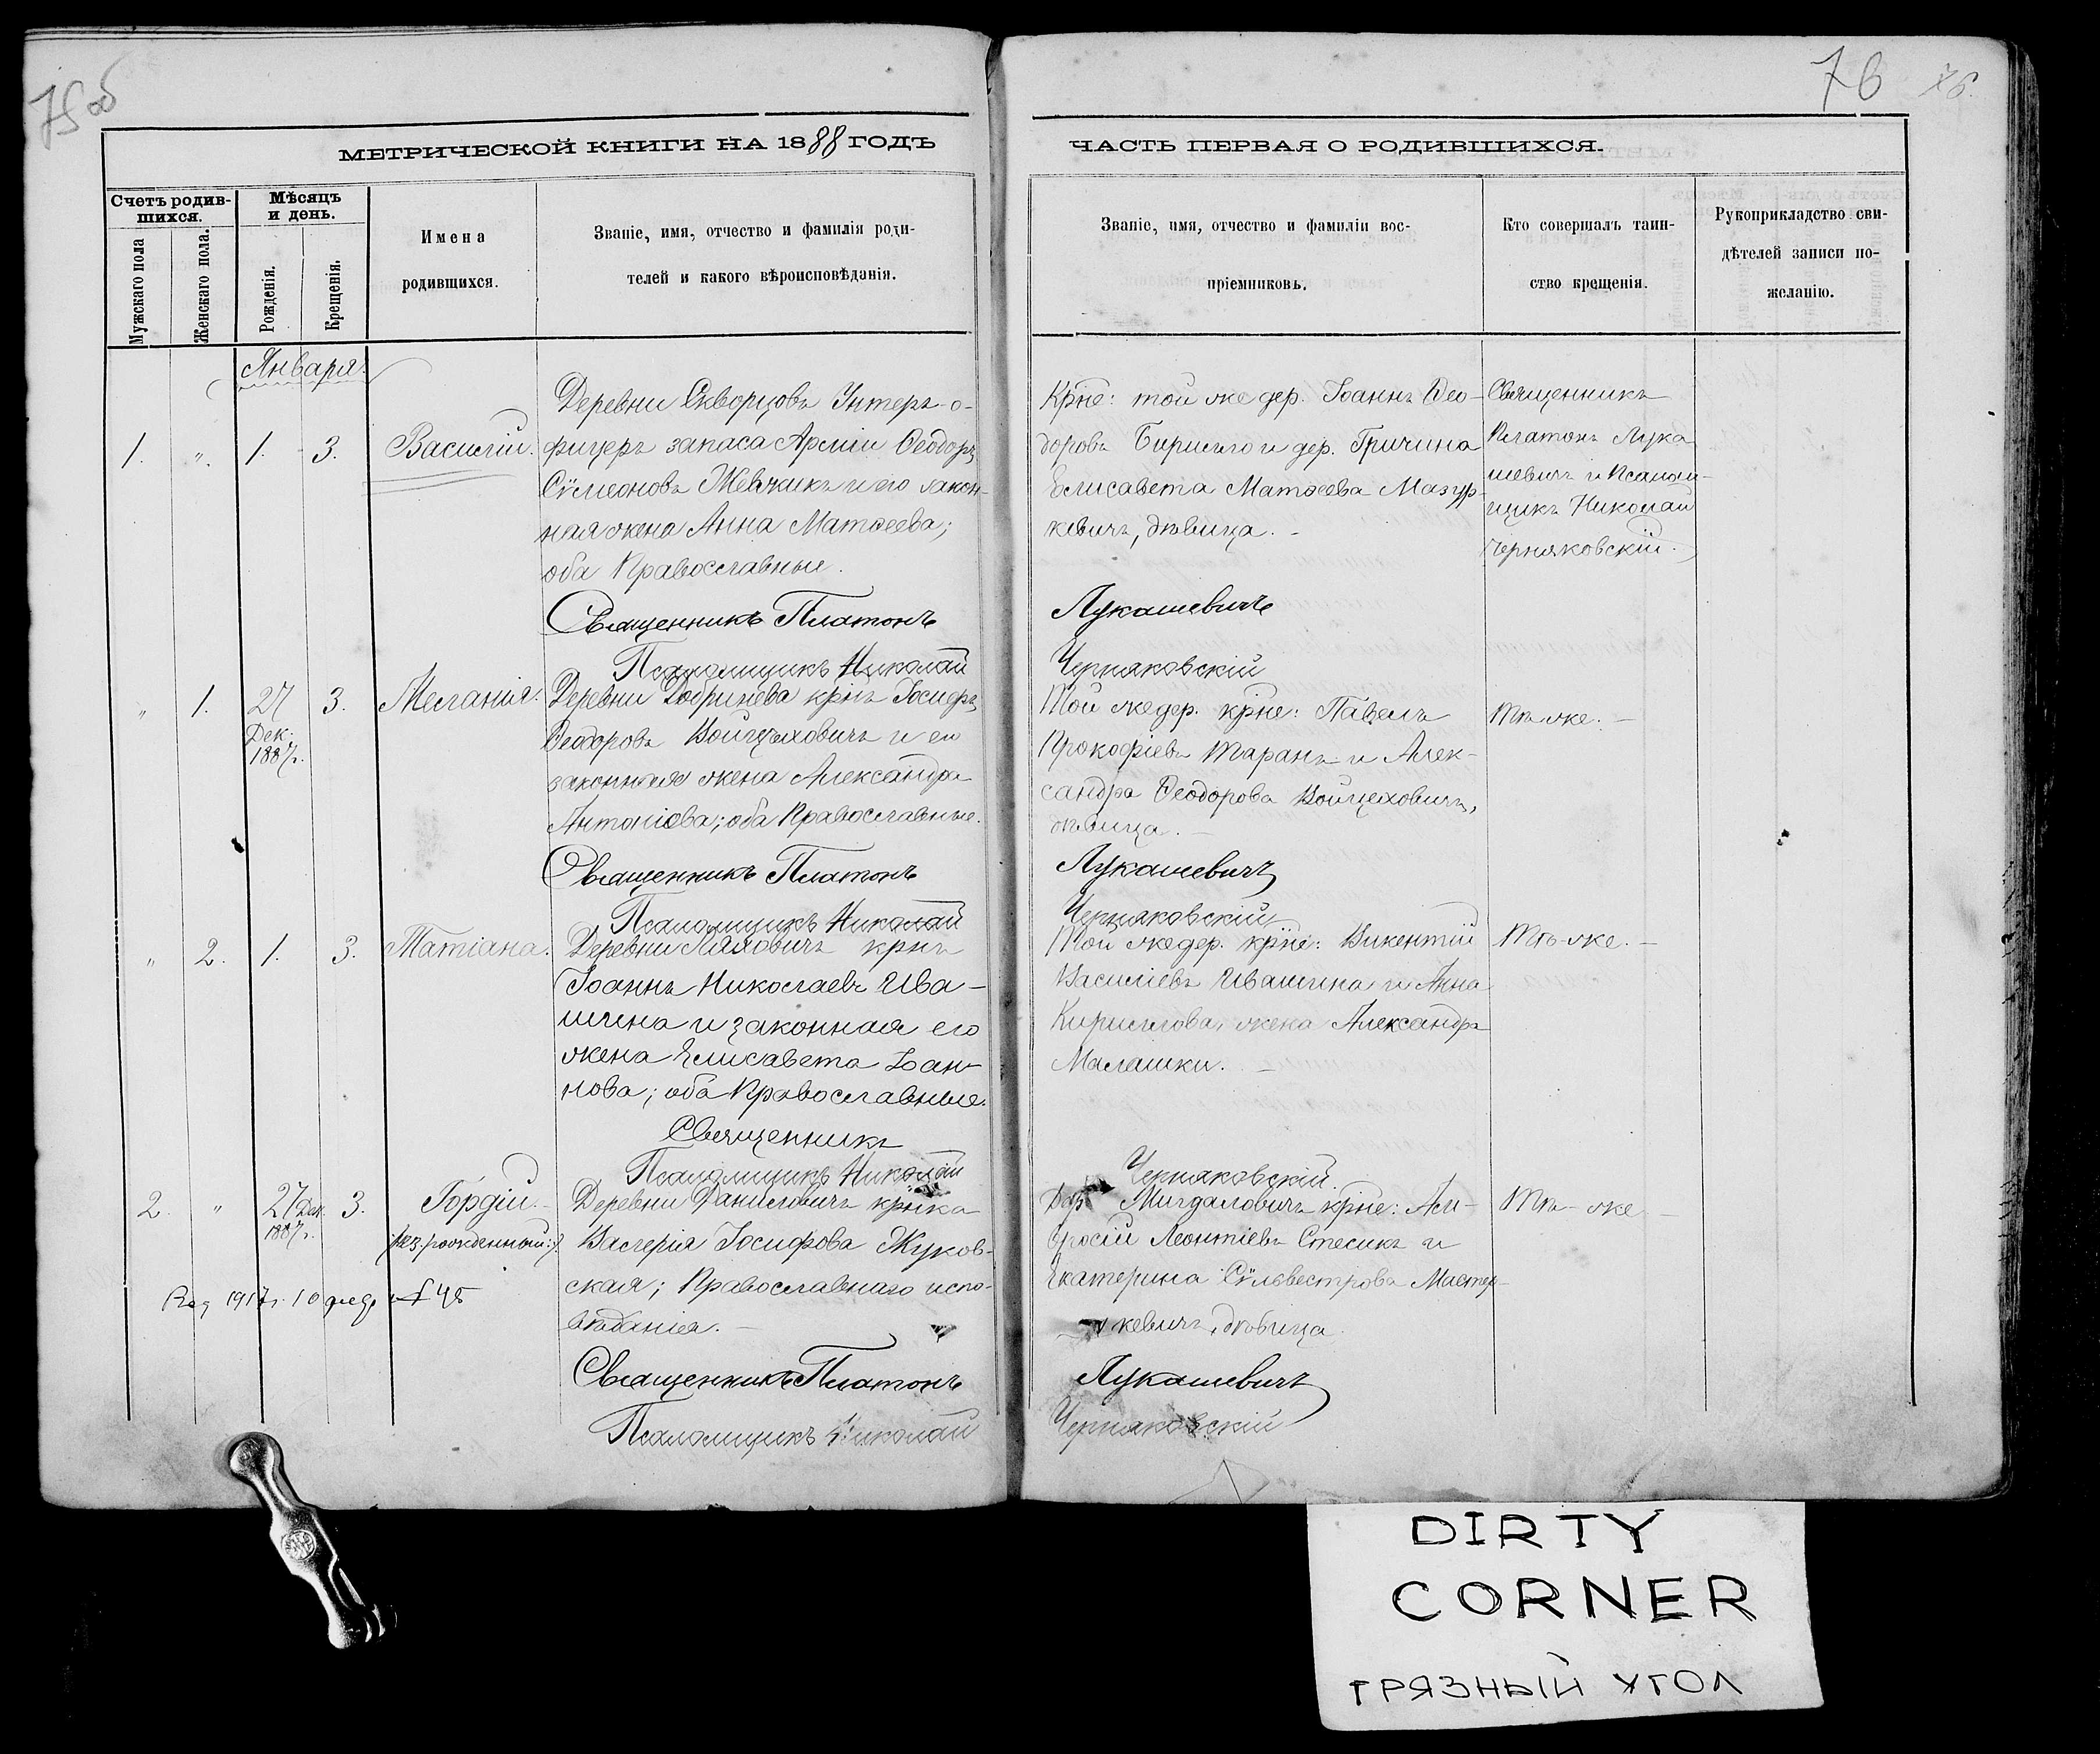 75 об
МЕТРИЧЕСКОЙ КНИГИ НА 1888 ГОДЪ
Счетъ родив-
шихся.
Мѣсяцъ
и день.
Мужскаго пола
Женскаго пола.
Рожденія.
Крещенія.
Имена
родившихся.
Званіе, имя, отчество и фамилія роди-
телей и какого вѣроисповѣданія.
Января.
1. " 1. 3. Василій.
Деревни Скворцовъ Унтеръ-о-
фицеръ запаса Арміи Ѳеодоръ
Сѵмеоновъ Жевжикъ и его закон-
ная жена Анна Матѳеева;
оба Православные.
Священникъ Платонъ
Псаломщикъ Николай
" 1. 27 Дек. 1887 г. 3. Меланія.
Деревни Добринева крнъ Іосифъ
Ѳеодоровъ Войцѣховичъ и его
законная жена Александра
Антоніева; оба Православные.
Священникъ Платонъ
Псаломщикъ Николай
" 2. 1. 3. Татіана.
Деревни Ляховичъ крнъ
Іоаннъ Николаевъ Ива-
шина и законная его
жена Елисавета Іоан-
нова; оба Православные.
Священникъ
Псаломщикъ Николай
2. " 27 Дек. 1887 г. 3. Гордій.
(незᵃ.рожденный:)
Деревни Даниловичъ крнка
Валерія Іосифова Жуков-
ская; Православнаго испо-
вѣданія.
1917 г. 10 № 45
Священникъ Платонъ
Псаломщикъ Николай
76 76.
ЧАСТЬ ПЕРВАЯ О РОДИВШИХСЯ.
Званіе, имя, отчество и фамиліи вос-
пріемниковъ.
Кто совершалъ таин-
ство крещенія.
Рукоприкладство сви-
дѣтелей записи по-
желанію.
Крне: той же дер. Іоаннъ Ѳео-
доровъ Бирилло и дер. Гричина
Елисавета Матѳеева Мазур-
кевичъ, дѣвица.
Священникъ
Платонъ Лука
шевичъ и Псалом-
щикъ Николай
Черняковскій.
Лукашевичъ
Черняковскій
Той же дер. крне: Павелъ
Прокофіевъ Таранъ и Алек-
сандра Ѳеодорова Войцеховичъ,
дѣвица.
Тѣ же.
Лукашевичъ
Черняковскій
Той же дер. крне: Викентій
Василіевъ Ивашина и Анна
Кириллова, жена Александра
Малашки.
Тѣ-же.
Черняковскій.
Дер. Мигдаловичъ крне: Ам-
вросій Леонтіевъ Стесикъ и
Екатерина Сѵльвестрова Мацке-
кевичъ, дѣвица.
Тѣ-же
Лукашевичъ
Черняковскій
DIRTY
CORNER
ГРЯЗНЫЙ УГОЛ